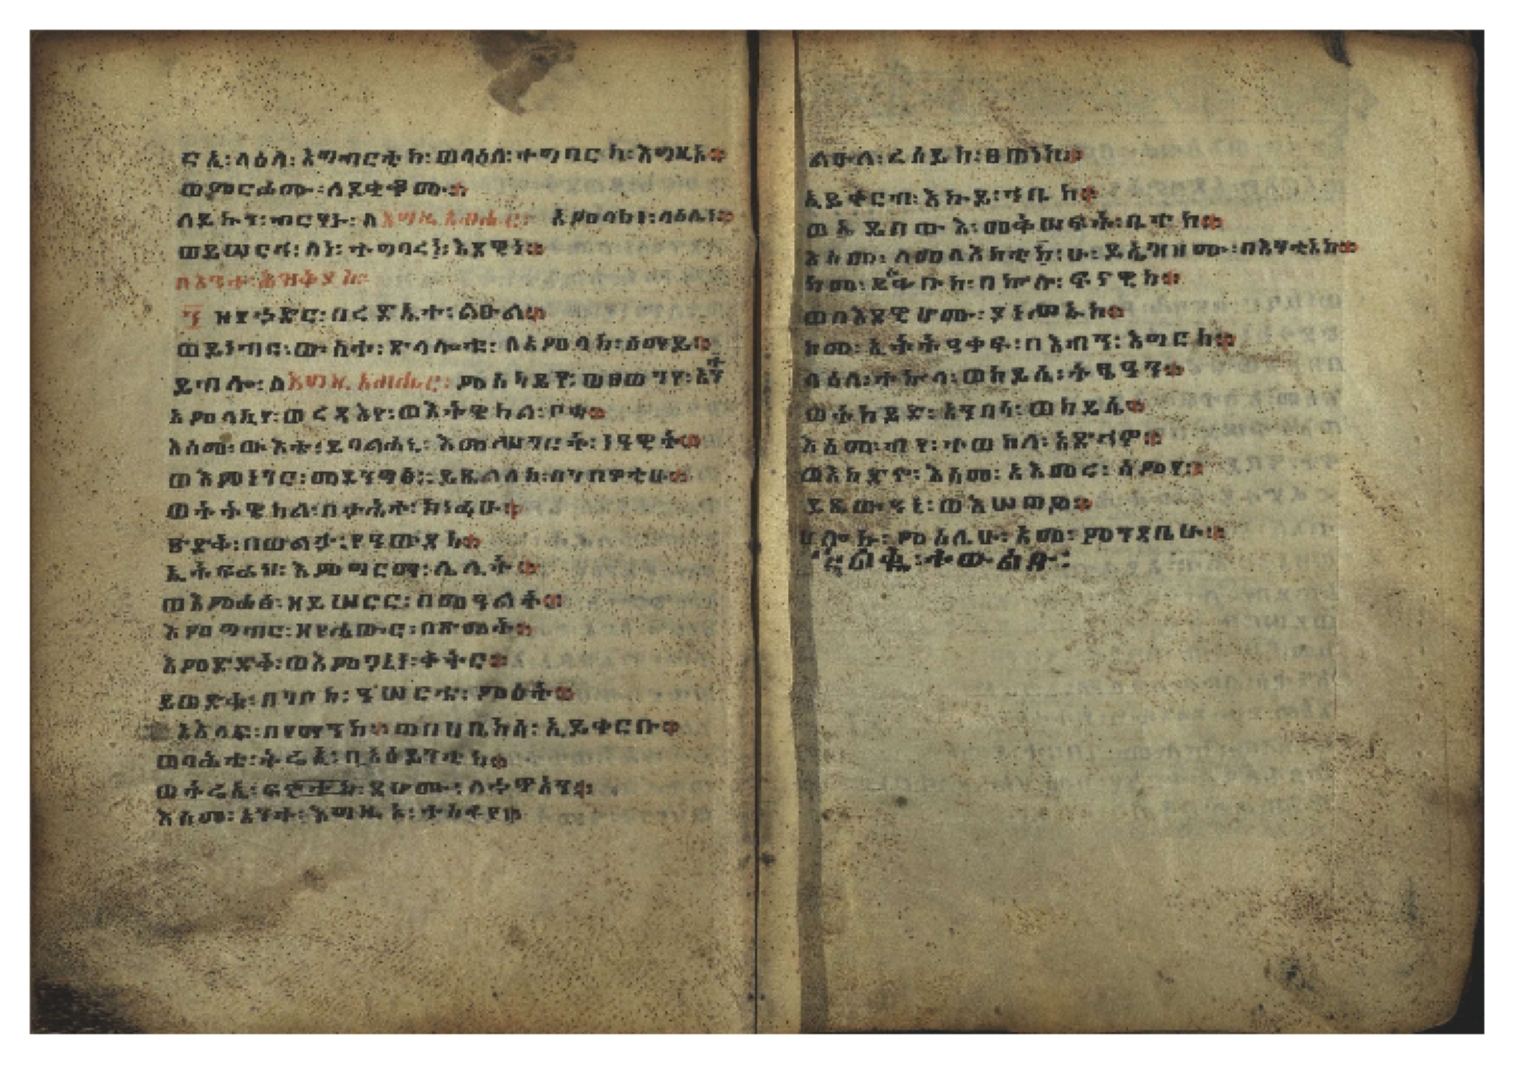 ርኢ፡ላዕለ፡አግብርቲከ፡ወላዕለ፡ተግባርከ፡እግዚኦ።
ወምርሖሙ፡ለደቂቆሙ።
ለይኩን፡ብርሃኑ፡ለእግዚአብሔር፡ አምላክነ፡ላዕሌነ።
ወይሠርሕ፡ለነ፡ተግባረ፡እደዊነ።
በእንተ፡ሕዝቅያስ፡
፺ ዘየኃድር፡በረድኤተ፡ልዑል።
ወይነብር፡ውስተ፡ጽላሎቱ፡ለአምላከ፡ሰማይ።
ይብሎ፡ለእግዚአብሔር፡ምስካይየ፡ወፀወንየ፡አንተ
አምላኪየ፡ወረዳእየ፡ወእትዌከል፡ቦቱ።
እስመ፡ውእቱ፡ይባልሐኒ፡እመሥገርት፡ነዓዊት።
ወእምነገር፡መደንግፅ፡ይጼልለከ፡በገበዋቲሁ።
ወትትዌከል፡በታሕተ፡ክነፊሁ።
ጽድቅ፡በወልታ፡የዓውደከ።
ኢትፍራህ፡እምግርማ፡ሌሊት።
ወእምሐፅ፡ዘይሠርር፡በመዓልት።
እምግብር፡ዘየሐውር፡በጽልመት።
እምድድቅ፡ወእምጋኔነ፡ቀትር።
ይወድቁ፡በገቦከ፡ዓሠርቱ፡ምዕት።
አእላፍ፡በየማንከ።ወኀቤከሰ፡ኢይቀርቡ።
ወባሕቱ፡ትሬኢ፡በአዕይንቲከ።
ወትሬኢ፡ፍዳሆሙ፡ለኃጥአን።
እስመ፡አንተ፡እግዚኦ፡ተስፋየ።
ልዑለ፡ረሰይከ፡ፀወነከ።
ኢይቀርብ፡እኩይ፡ኀቤከ።
ወኢይበውእ፡መቅሠፍት፡ቤተከ።
እስመ፡ለመላእክቲሁ፡ይኤዝዞሙ፡በእንቲአከ።
ከመ፡ይዕቀቡከ፡በኵሉ፡ፍናዊከ።
ወበእደዊሆሙ፡ያነሥኡከ።
ከመ፡ኢትትዓቀፍ፡በእብን፡እግርከ።
ላዕለ፡ተኵላ፡ወከይሲ፡ትፄዓን።
ወትከይድ፡አንበሳ፡ወከይሴ።
እስመ፡ብየ፡ተወከለ፡አድኅኖ።
ወእከድኖ፡እስመ፡አእመረ፡ስምየ።
ይጼውዓኒ፡ወእሠጠዎ።
ሀሎኩ፡ምስሌሁ፡አመ፡ምንዳቤሁ።